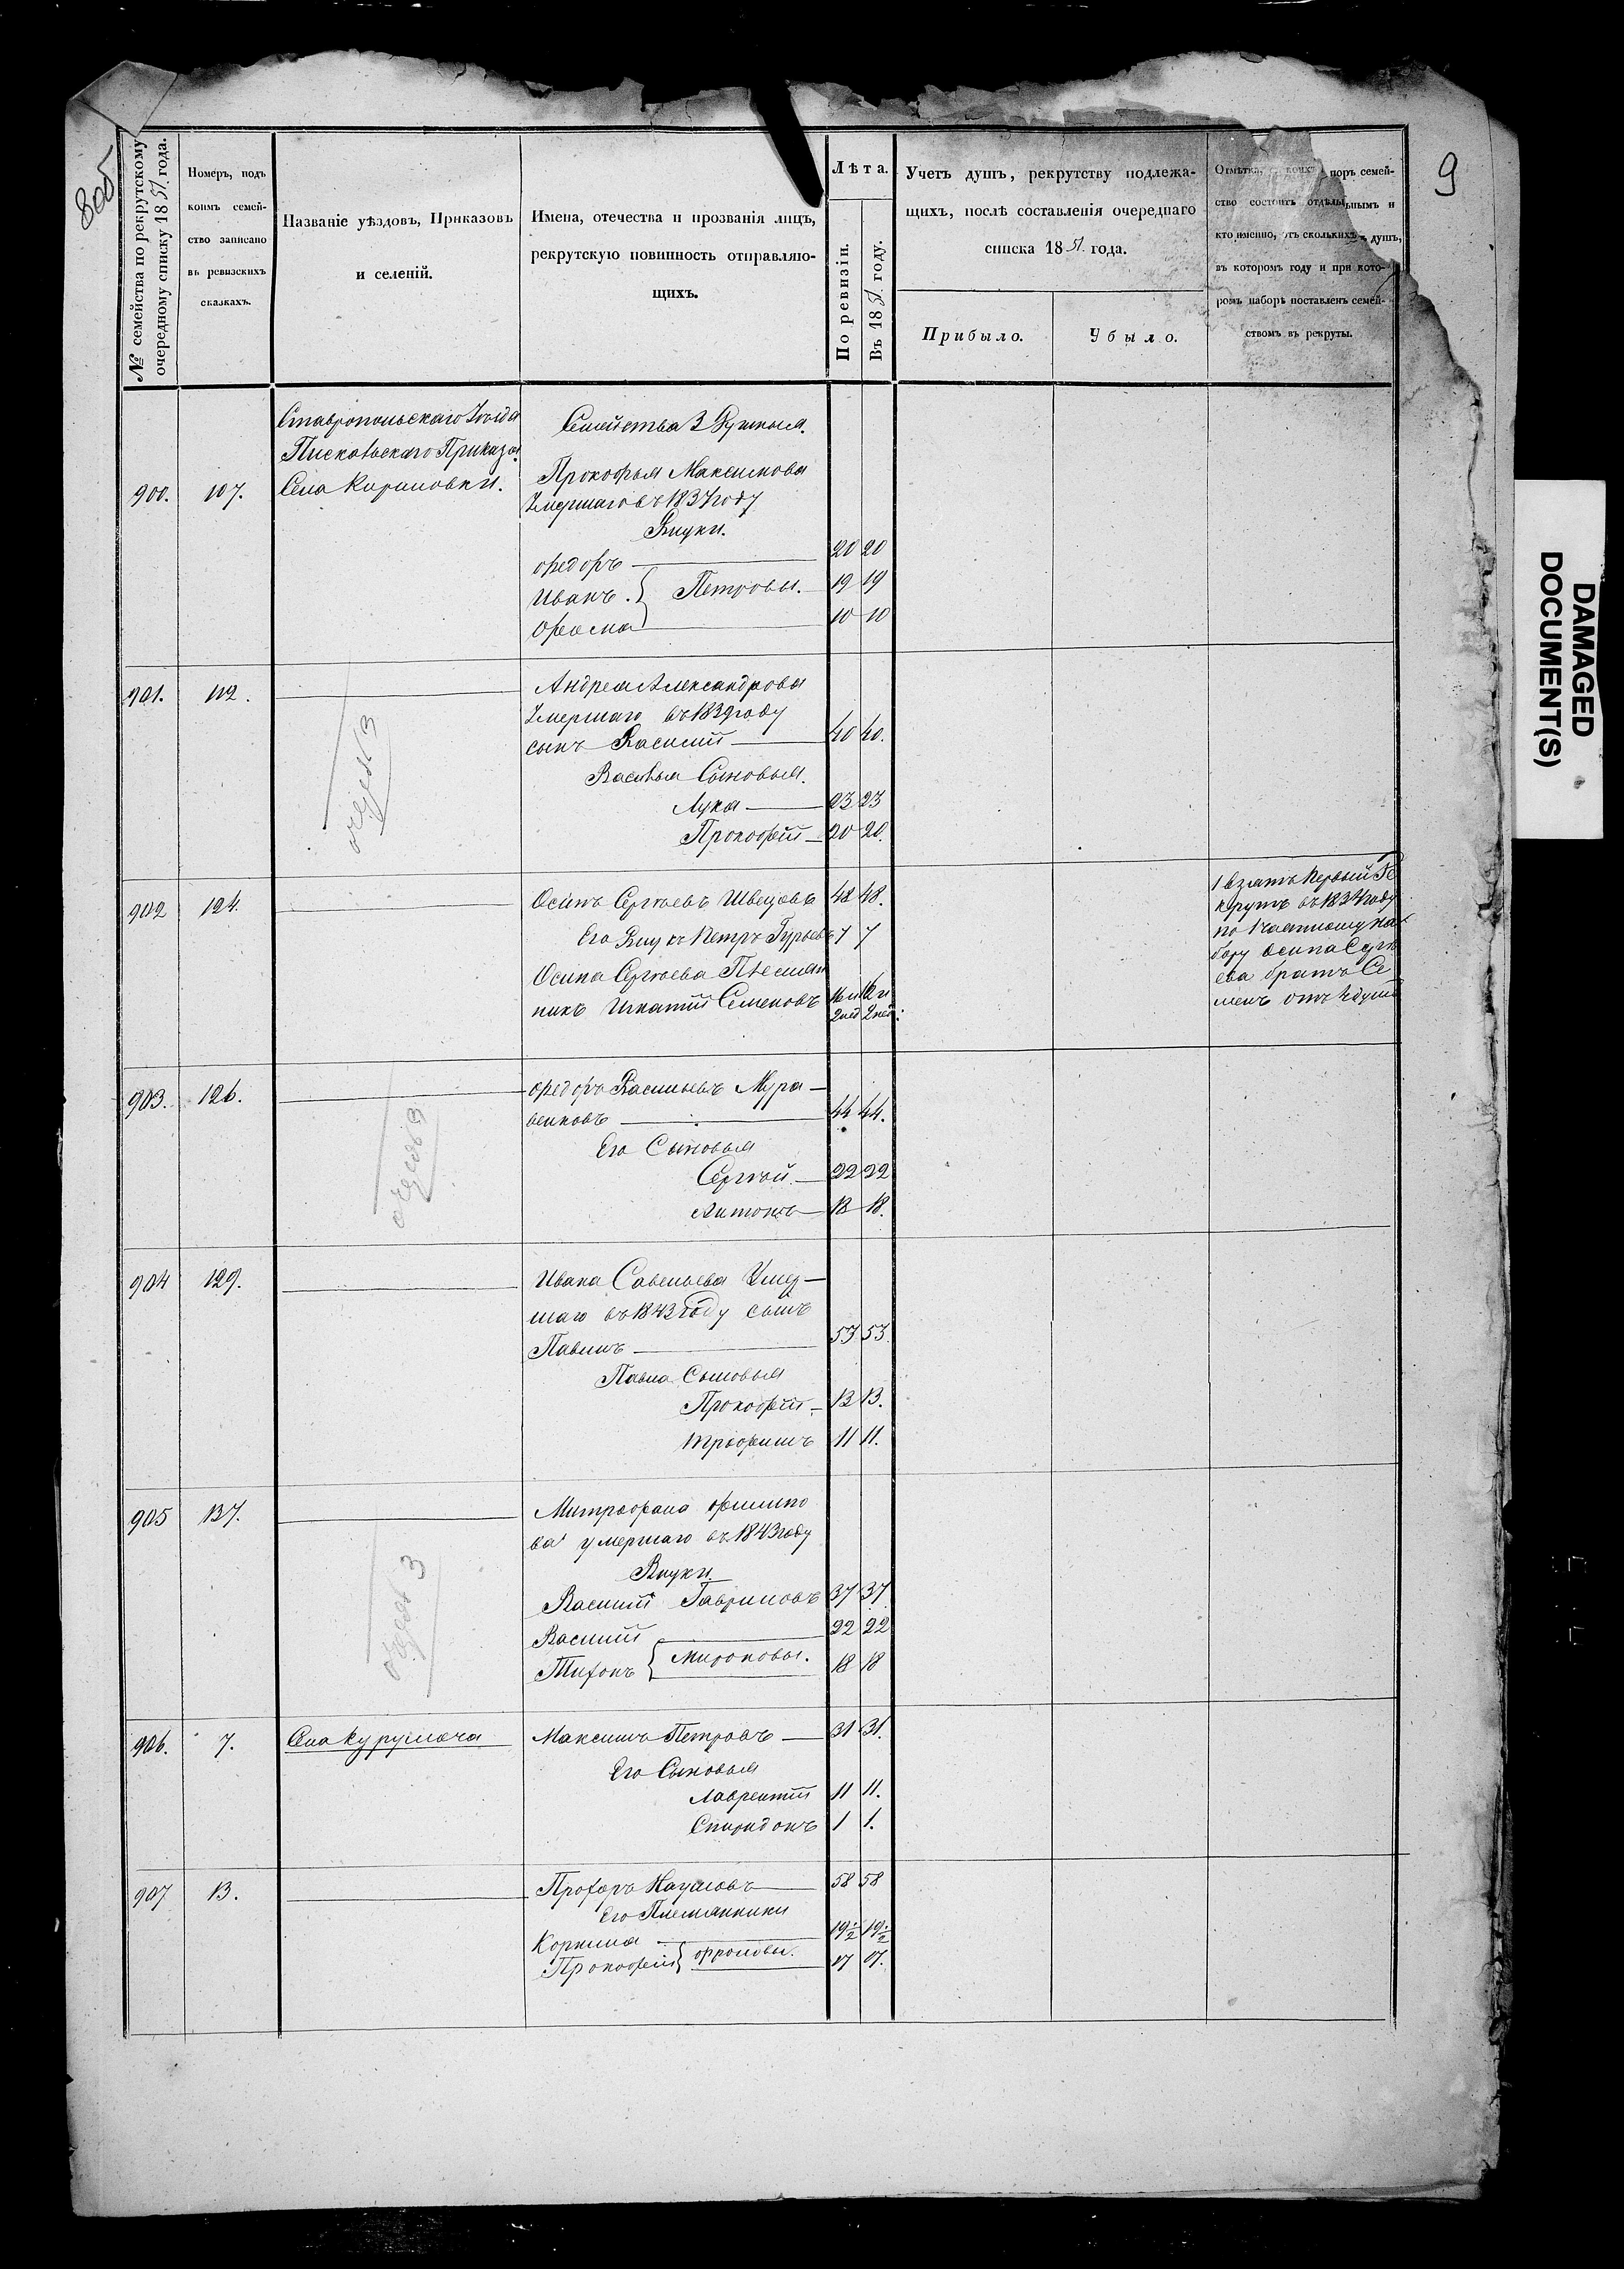 805
9
№ семейства по рекрутскому
очередному списку 1851 года.
Номеръ, подъ
коимъ семей-
ство записано
въ ревизскихъ
сказкахъ.
Названіе уѣздовъ, Приказовъ
и селеній.
Имена, отечества и прозванія лицъ,
рекрутскую повинность отправляю-
щихъ.
Лѣта.
По ревизіи.
Въ 1851 году.
Учетъ душъ, рекрутству подлежа-
щихъ, послѣ составленія очереднаго
списка 1851 года.
Прибыло.
Убыло.
Отмѣтка, поръ семей-
ство состоитъ отдѣльнымъ и
кто именно, отъ сколькихъ душъ,
въ которомъ году и при кото-
ромъ наборѣ поставленъ семей-
ствомъ въ рекруты.
Ставропольскаго Уѣзда
Семейства 3 Душныя.
Приказа
Прокофья Максимова
900. 107. Села Кириловки.
Умершаго въ 1837 году
Внуки.
Ѳедоръ 20 20
Иванъ. Петровы. 19 19
Ѳома 10 10
901. 112. Андрея Александрова
Умершаго въ 1839 году
сынъ Василій 40 40.
Васильи Сыновья.
Лука 23 23
Прокофій 20 20.
902 124. Осипъ Сергѣевъ Швецовъ 48 48.
Его Внукъ Петръ Гурьевъ 7 7
Осипа Сергѣева Племян
никъ Игнатій Семеновъ
1 взятъ Первый Ре
крутъ въ 1834 году
по 1 частному на
бору Осипа Сергѣ
ева братъ Се
менъ отъ душъ
903. 126. Ѳедоръ Васильевъ Мура-
веиковъ 44 44.
Его Сыновья
Сергѣй. 22 22
Антонъ 18 18.
904 129. Ивана Савельева Умер-
шаго въ 1843 году сынъ
Павелъ 53 53.
Павла Сыновья
Прокофій 13 13.
Трофимъ 11 11.
905 137. Митрофана Филипо
ва умершаго въ 1843 году
Внуки
Василій Гавриловъ 37 37
Василій 22 22
Тихонъ Мироновы. 18 18
906. 7. Села Курумоча Максимъ Петровъ 31 31.
Его Сыновья
Лаврентій 11 11.
Спиридонъ 1 1.
907 13. Прохоръ Наумовъ 58 58
Его Племянники
Корнила 19½ 19½
Прокофій Фроловы. 17 17.
DAMAGED
DOCUMENT(S)